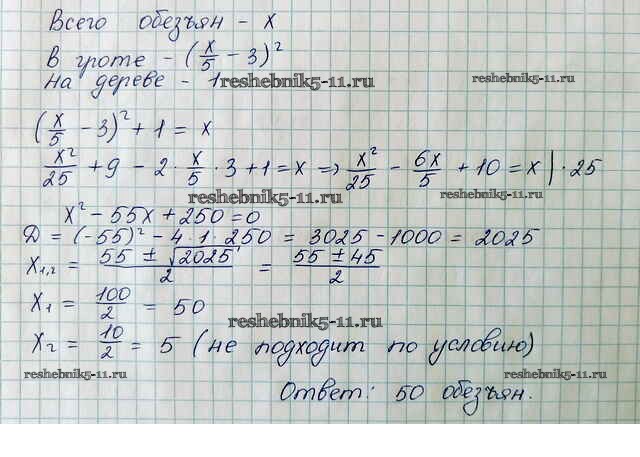 Всего обезъян - x
В гроте - (x/5 - 3)²
На дереве - 1
reshebnik5-11.ru
reshebnik5-11.ru
(x/5 - 3)² + 1 = x
x²/25 + 9 - 2 · x/5 · 3 + 1 = x ⇒ x²/25 - 6x/5 + 10 = x | · 25
reshebnik5-11.ru
reshebnik5-11.ru
x² - 55x + 250 = 0
Д = (-55)² - 4 · 1 · 250 = 3025 - 1000 = 2025
x₁,₂ = (55 ± √2025)/2 = (55 ± 45)/2
x₁ = 100/2 = 50
reshebnik5-11.ru
x₂ = 10/2 = 5 (не подходит по условию)
reshebnik5-11.ru
reshebnik5-11.ru
Ответ: 50 обезъян.